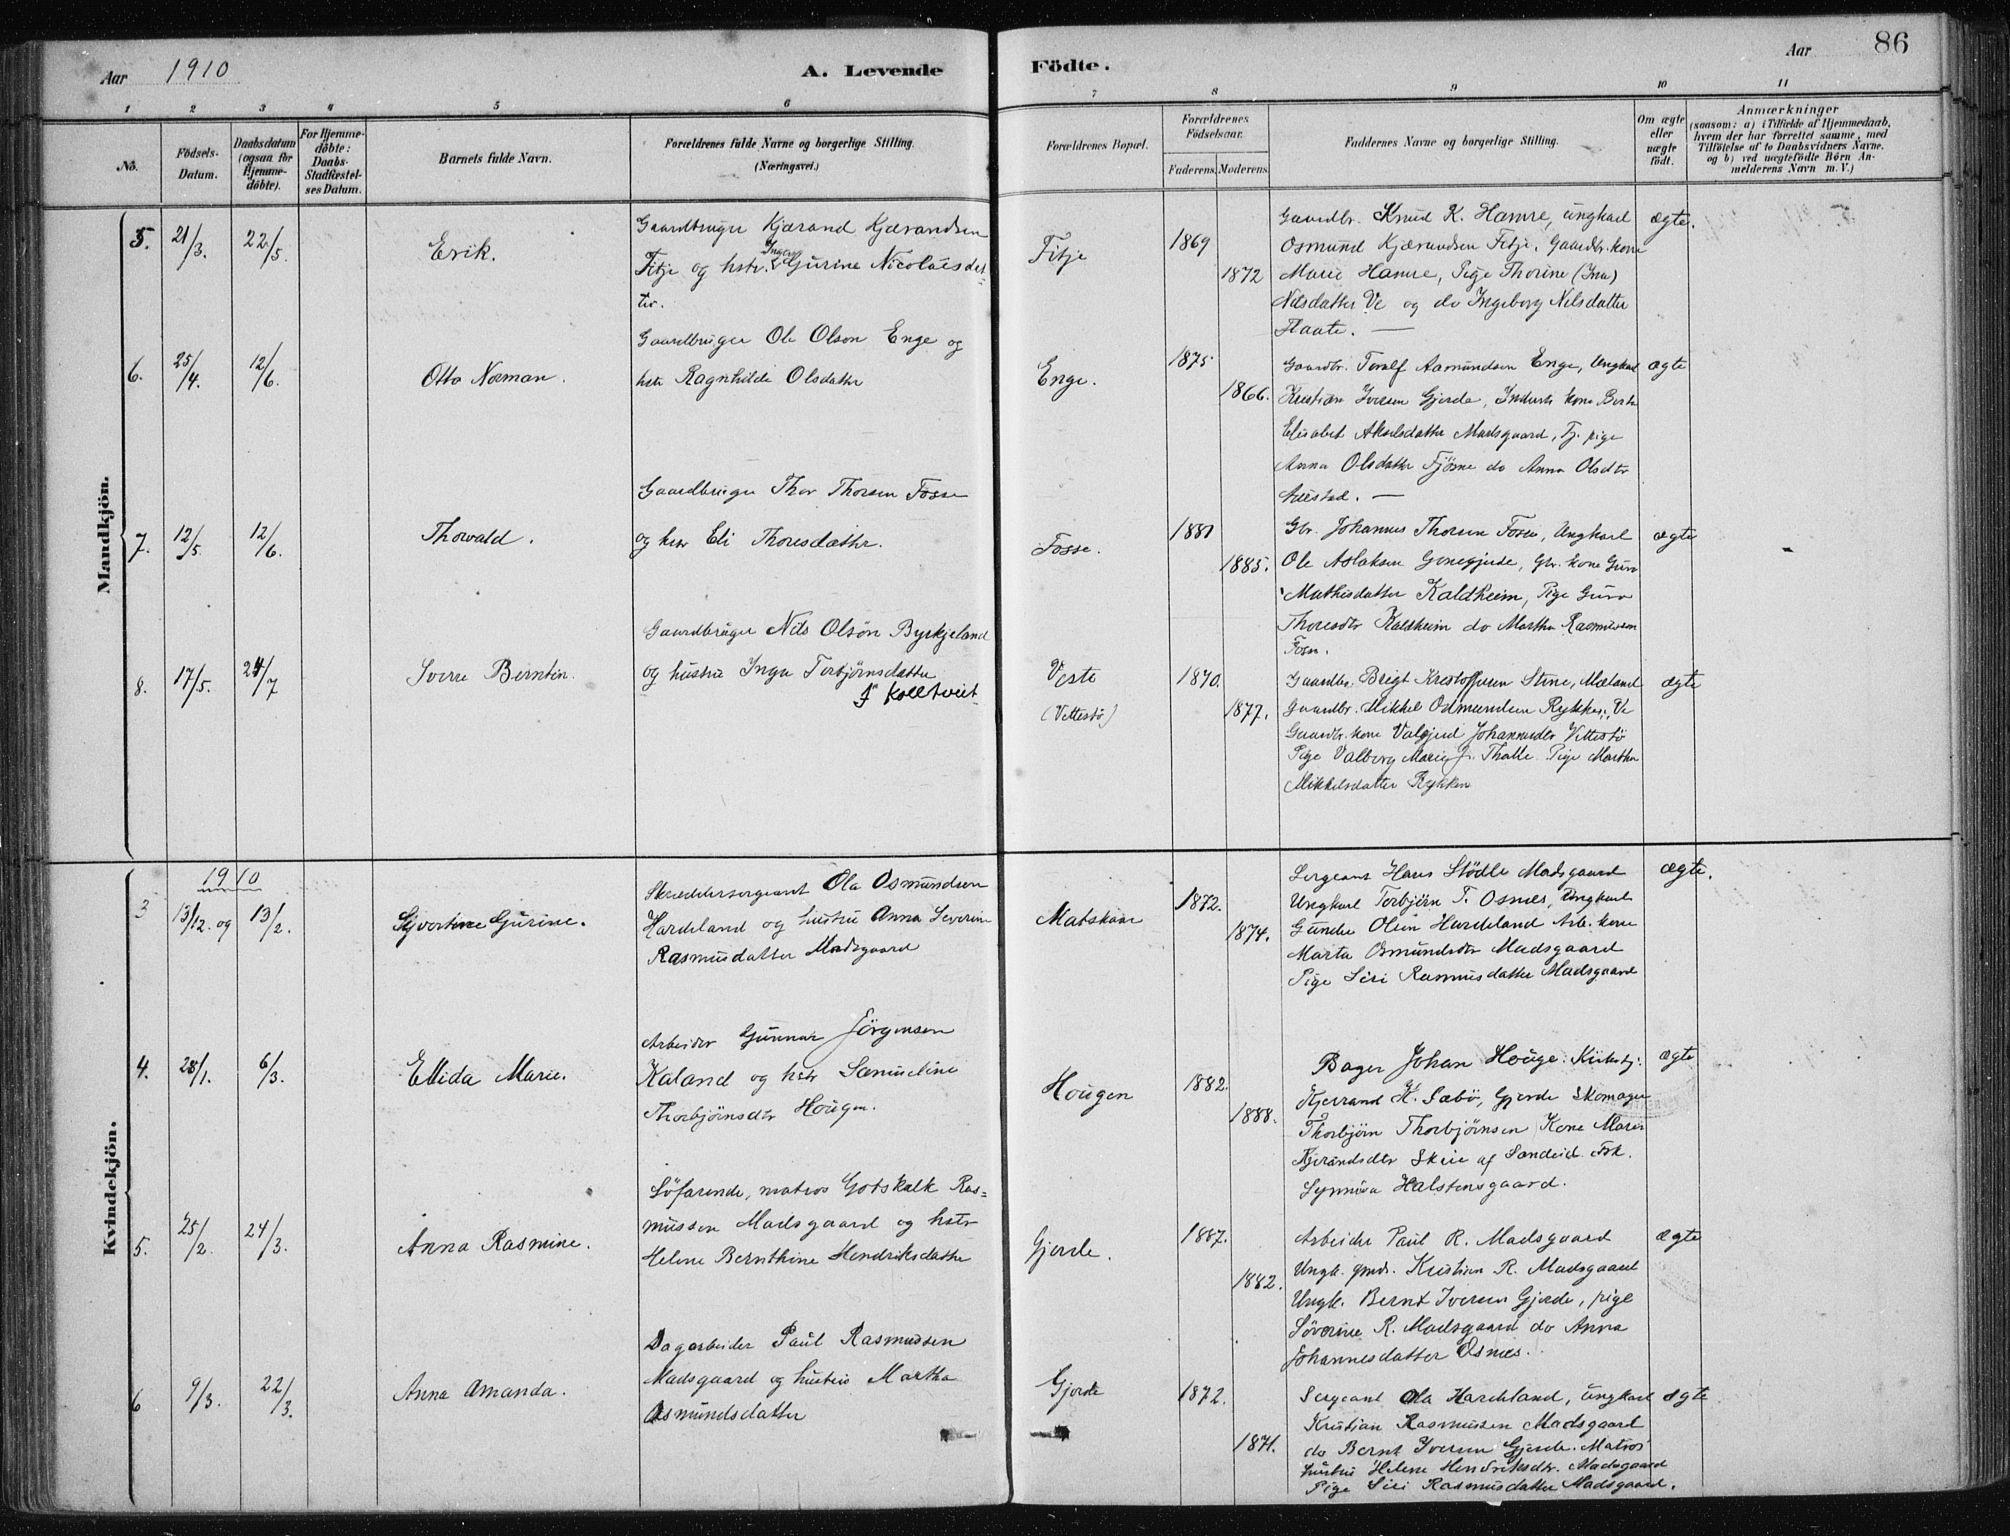 Aar 1910
A. Levende
Födte.
Aar
86
1 2 3 4 5 6 7 8 9 10 11
No.
Födsels-
Datum.
Daabsdatum
(ogsaa for
Hjemme-
döbte).
For Hjemme-
döbte:
Daabs-
Stadfæstel-
ses Datum.
Barnets fulde Navn.
Forældrenes fulde Navne og borgerlige Stilling.
(Næringsvei.)
Forældrenes Bopæl.
Forældrenes
Födselsaar.
Faderens.
Moderens.
Faddernes Navne og borgerlige Stilling.
Om ægte
eller
uægte
födt.
Anmærkninger
(saasom: a) i Tilfælde af Hjemmedaab,
hvem der har forrettet samme, med
Tilföielse af to Daabsvidners Navne,
og b) ved uægtefödte Börn An-
melderens Navn m. V.)
Mandkjön.
5.
21/3.
22/5.
Erik.
Gaardbruger Kjærand Kjærandsen
Fitje og hstr. Inger Gurine Nicolaisdat-
ter.
Fitje
1869
1872
Gaardbr. Knud K. Hamre, ungkarl
Osmund Kjærandsen Fitje. Gaardbr. kone
Marie Hamre, Pige Thorine (Ina)
Nilsdatter Ve og do Ingeborg Nilsdatter
Flaate. —
ægte.
6.
25/4.
12/6.
Otto Norman.
Gaardbruger Ole Olson Enge og
hstr Ragnhilde Olsdatter
Enge.
1875
1866.
Gaardbr. Toralf Aamundsen Enge, Ungkarl
Kristian Iversen Gjerde, Inderst kone Berta
Elisabet Akselsdatter Madsgaard, Tj. pige
Anna Olsdatter Fjösne do Anna Olsdtr
Austad. —
ægte
7.
12/5.
12/6.
Thorvald.
Gaardbruger Thor Thorsen Fosse
og hstr Eli Thoresdatter.
Fosse.
1881
1885.
Gbr. Johannes Thorsen Fosse, Ungkarl
Ole Aslaksen Gonegjerde, Gbr. kone Guro
Mathisdatter Kaldheim, Pige Guro
Thoresdtr Kaldheim do Martha Rasmussen
Fosse.
ægte
8.
17/5.
24/7
Sverre Berntin.
Gaardbruger Nils Olsön Byrkjeland
og hustru Inga Torbjörnsdatter
f. Kolltveit
Veste
(Vettestö)
1870.
1877.
Gaardbr. Brigt Kristoffersen Stene, Mæland
Gaardbr. Mikkel Osmundsen Rykken, Ve
Gaardbr. kone Valgjerd Johannesdtr Vettestö
Pige Valborg Marie J. Thalle. Pige Martha
Mikkelsdatter Rykken
ægte
Kvindekjön.
1910
3
13/12. 09
13/2.
Sjvortine Gurine.
Skreddersergeant Ola Osmundsen
Hardeland og hustru Anna Severine
Rasmusdatter Madsgaard
Matskaar
1872.
1874.
Sergeant Hans Stödle Madsgaard
Ungkarl Torbjörn T. Osnes, Ungkarl
Gunder Olsen Hardeland Arb. kone
Marta Osmundsdtr Madsgaard
Pige Siri Rasmusdatter Madsgaard
ægte.
4.
28/1.
6/3.
Ellida Marie.
Arbeider Gunnar Jörgensen
Kaland og hstr Samueline
Thorbjörnsdtr Hougen.
Hougen
1882.
1888.
Bager Johan Houge. Kirkebj:
Kjerrand K. Sæbö, Gjerde Skomager
Thorbjörn Thorbjörnsen Kone Maren
Kjerandsdtr Skeie af Sandeid. Frk.
Synnöva Halstensgaard.
ægte
5.
25/2.
24/3.
Anna Rasmine.
Söfarende, matros Gotskalk Ras-
mussen Madsgaard og hstr
Helene Bernthine Hendriksdatter
Gjerde.
1887.
1882.
Arbeider Paul R. Madsgaard
Ungk. gmd. Kristian R. Madsgaard
Ungk. Bernt Iversen Gjerde, pige
Söverine R. Madsgaard do Anna
Johannesdatter Osnes.
ægte
6
9/3.
22/3.
Anna Amanda.
Dagarbeider Paul Rasmussen
Madsgaard og hustru Martha
Osmundsdatter
Gjerde
1872.
1871.
Sergeant Ola Hardeland, ungkarl
Kristian Rasmussen Madsgaard
do Bernt Iversen Gjerde. Matros
hustru Helene Hendriksdtr. Madsgaard
Pige Siri Rasmusdatter Madsgaard.
ægte